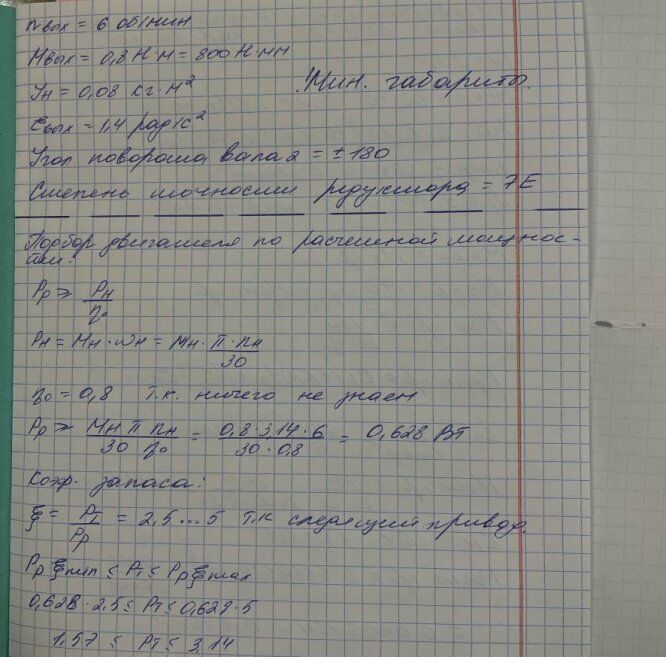 nвых = 6 об/мин
Mвых = 0,8 Н·м = 800 Н·мм
Jн = 0,08 кг·м² Мин. габариты.
εвых = 1,4 рад/с²
Угол поворота вала α = ±180
Степень точности редуктора = 7E
Подбор двигателя по расчетной мощнос-
ти:
Pр ≥ Pн/η₀
Pн = Mн·ωн = Mн· π·nн/30
η₀ = 0,8 т.к. ничего не знаем
Pр ≥ Mн π nн/30 η₀ = 0,8·3,14·6/30·0,8 = 0,628 Вт
Коэф. запаса:
ξ = Pт/Pр = 2,5...5 т.к следящий привод.
Pр ξmin ≤ Pт ≤ Pр ξmax
0,628·2,5 ≤ Pт ≤ 0,628·5
1,57 ≤ Pт ≤ 3,14